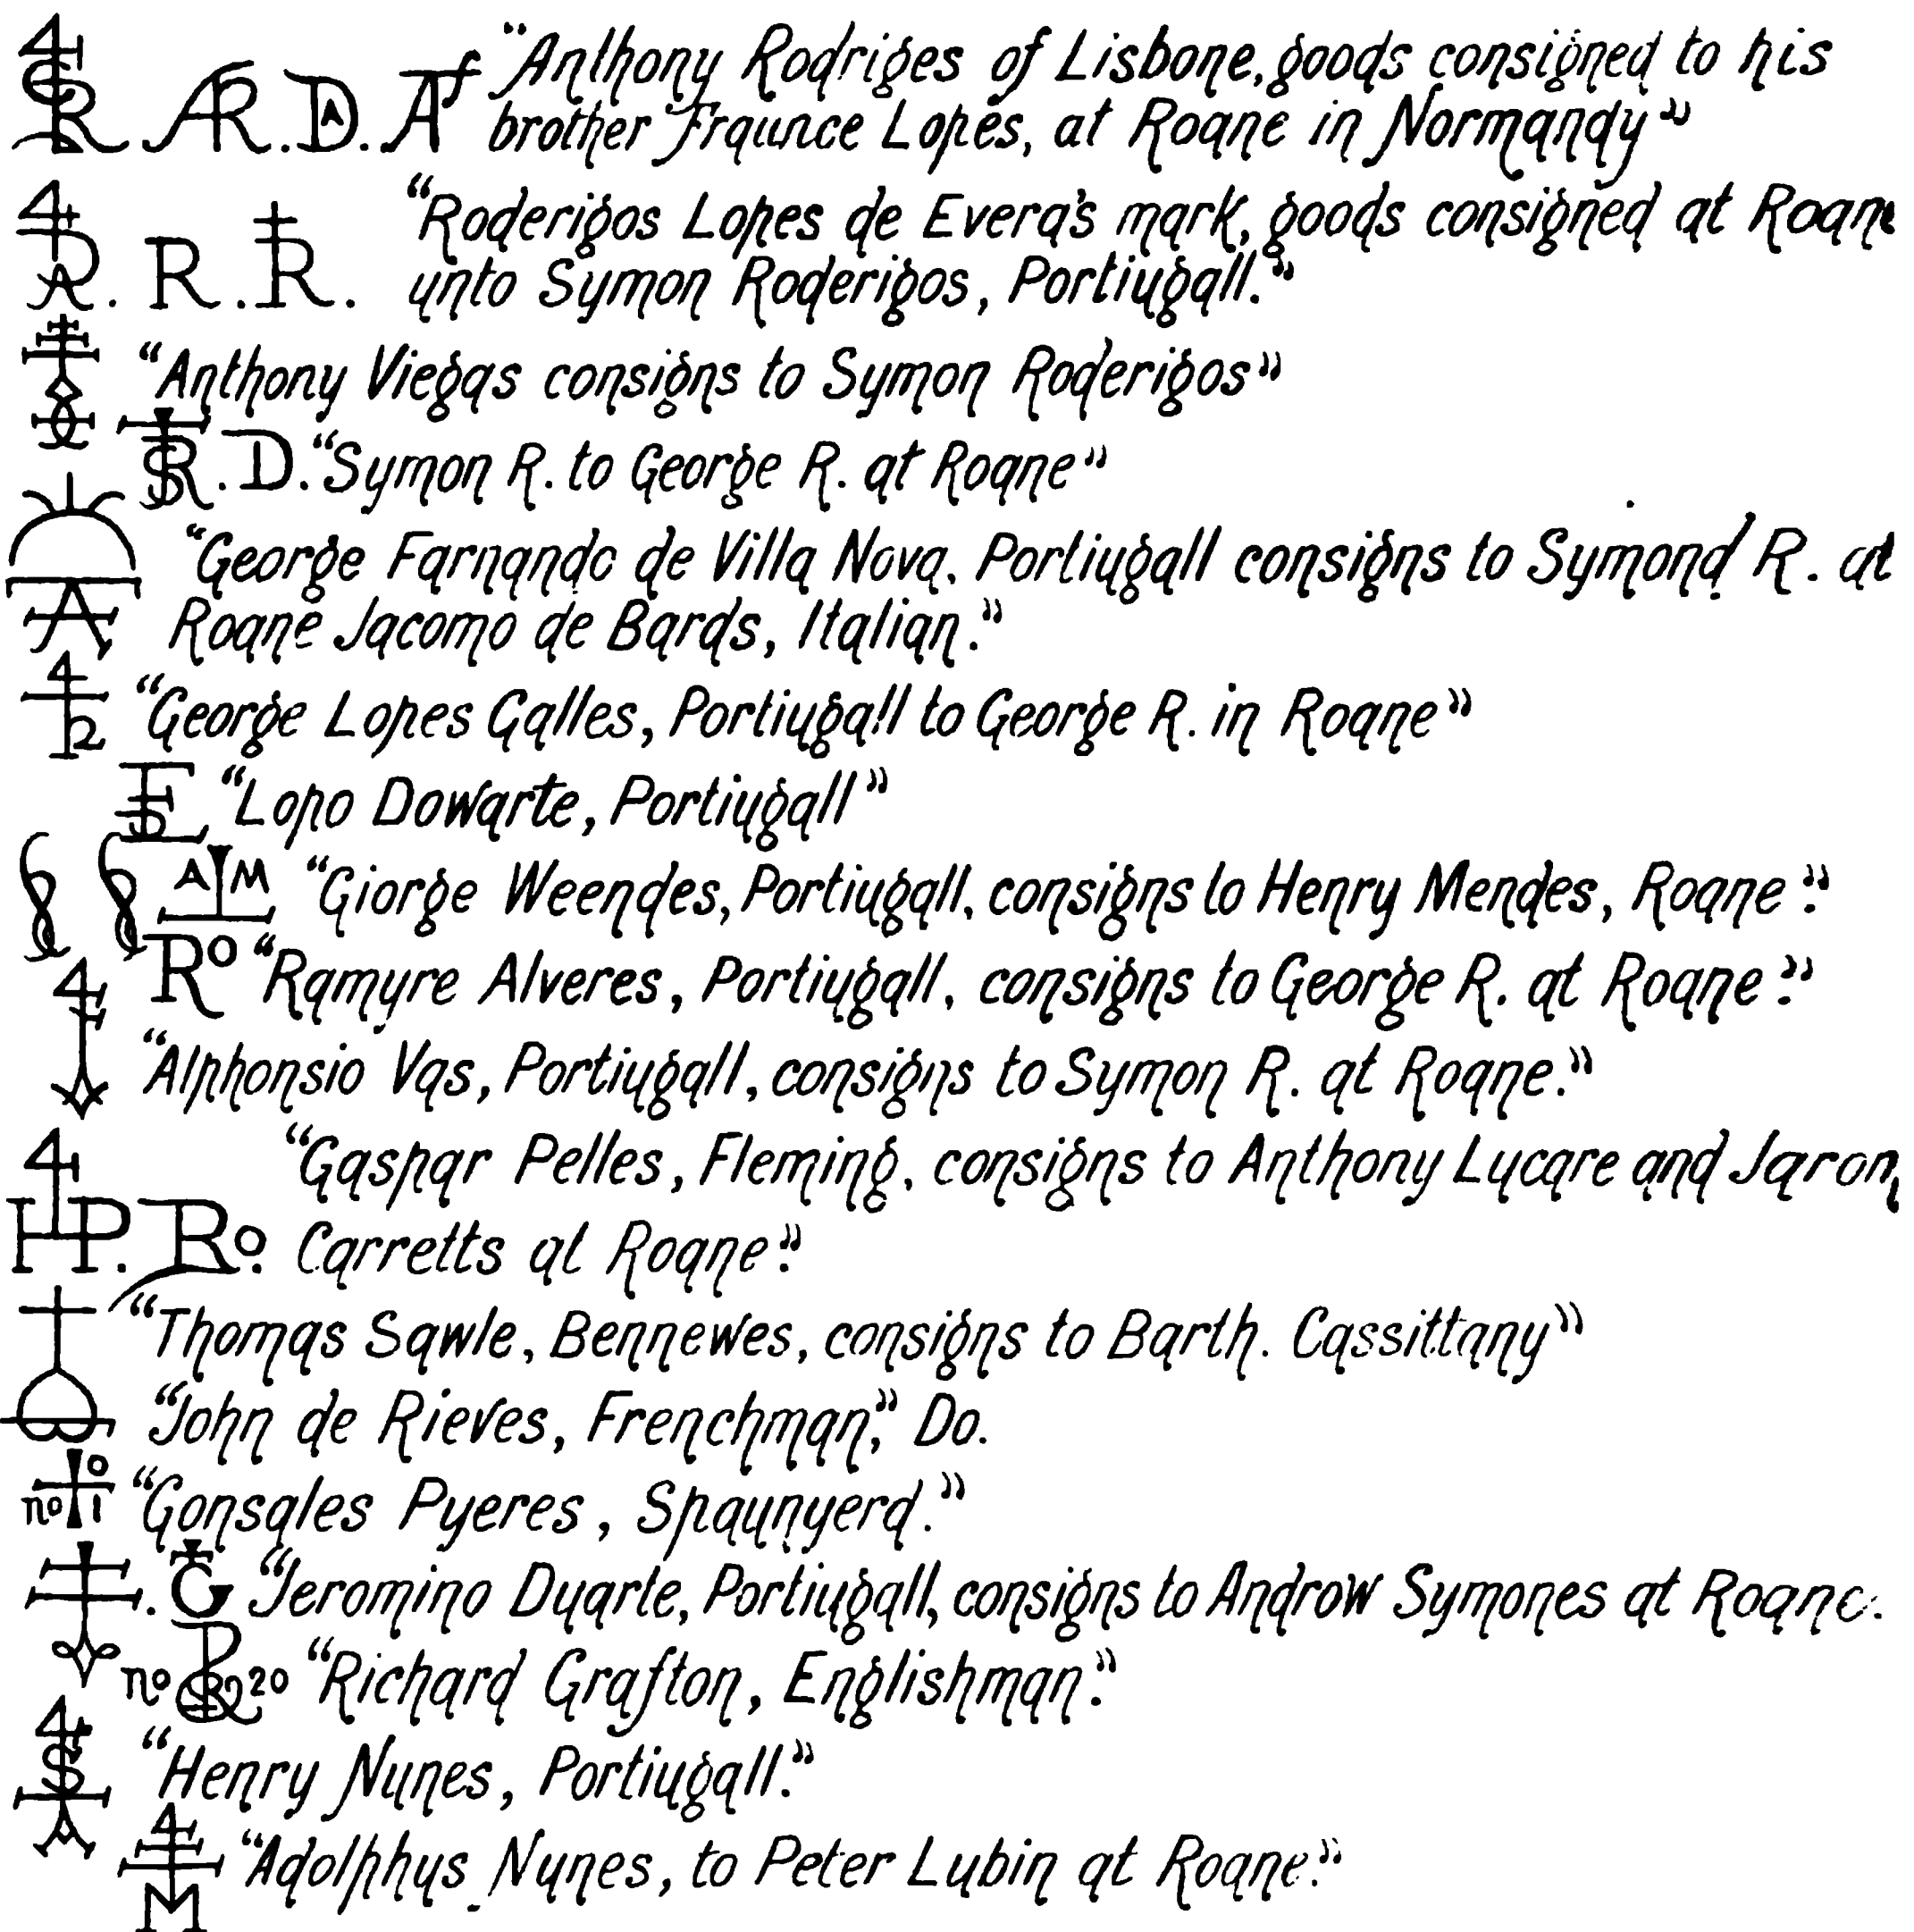 "Anthony Rodriges of Lisbone, goods consigned to his
R. D. A brother Fraunce Lopes, at Roane in Normandy"
"Roderigos Lopes de Evera's mark, goods consigned at Roane
R. R. unto Symon Roderigos, Portiugall."
"Anthony Viegas consigns to Symon Roderigos"
R. D. "Symon R. to George R. at Roane"
"George Farnando de Villa Nova, Portiugall consigns to Symond R. at
Roane Jacomo de Bards, Italian."
"George Lopes Galles, Portiugall to George R. in Roane"
"Lopo Dowarte, Portiugall"
A M "Giorge Weendes, Portiugall, consigns to Henry Mendes, Roane."
Ro "Ramyre Alveres, Portiugall, consigns to George R. at Roane."
"Alphonsio Vas, Portiugall, consigns to Symon R. at Roane."
"Gaspar Pelles, Fleming, consigns to Anthony Lucare and Jaron
HP. Ro. Carretts at Roane."
"Thomas Sawle, Bennewes, consigns to Barth. Cassittany"
"John de Rieves, Frenchman," Do.
no 1 "Gonsales Pyeres, Spaunyerd."
G "Jeromino Duarte, Portiugall, consigns to Androw Symones at Roane.
no 20 "Richard Grafton, Englishman."
"Henry Nunes, Portiugall."
M "Adolphus Nunes, to Peter Lubin at Roane."